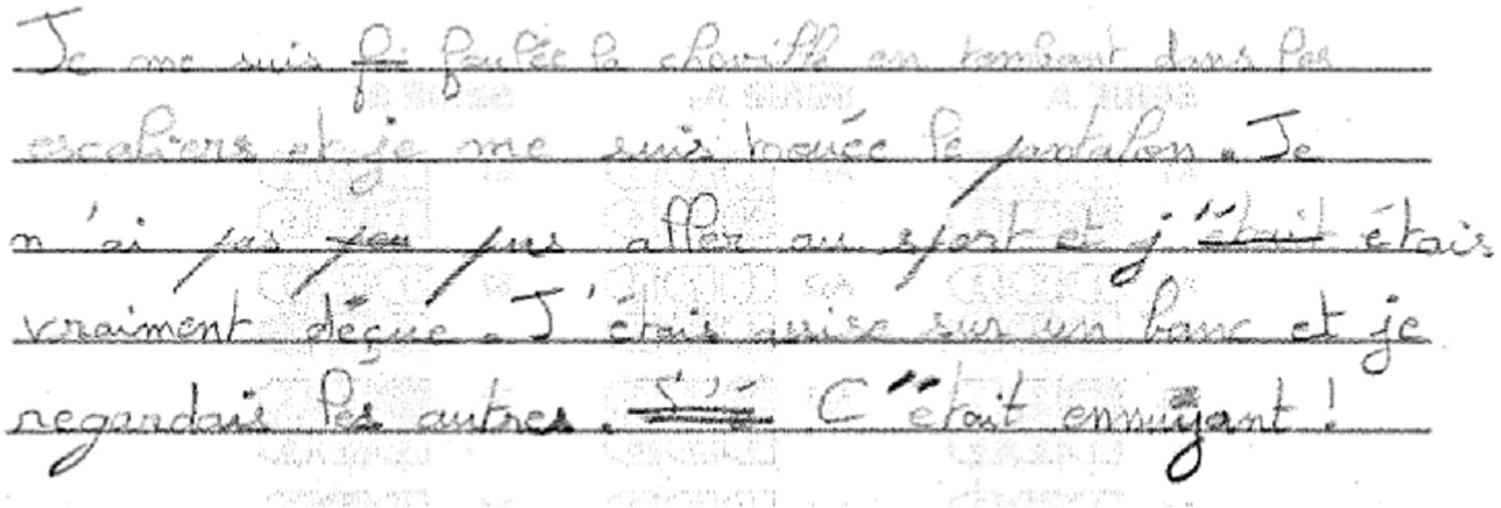 Je me suis fi foulée la cheville en tombant dans les
escaliers et je me suis trouée le pantalon. Je
n'ai pas peu pus aller au sport et j'était étais
vraiment déçue. J'étais assise sur un banc et je
regardais les autres. S'é C'était ennuyant !